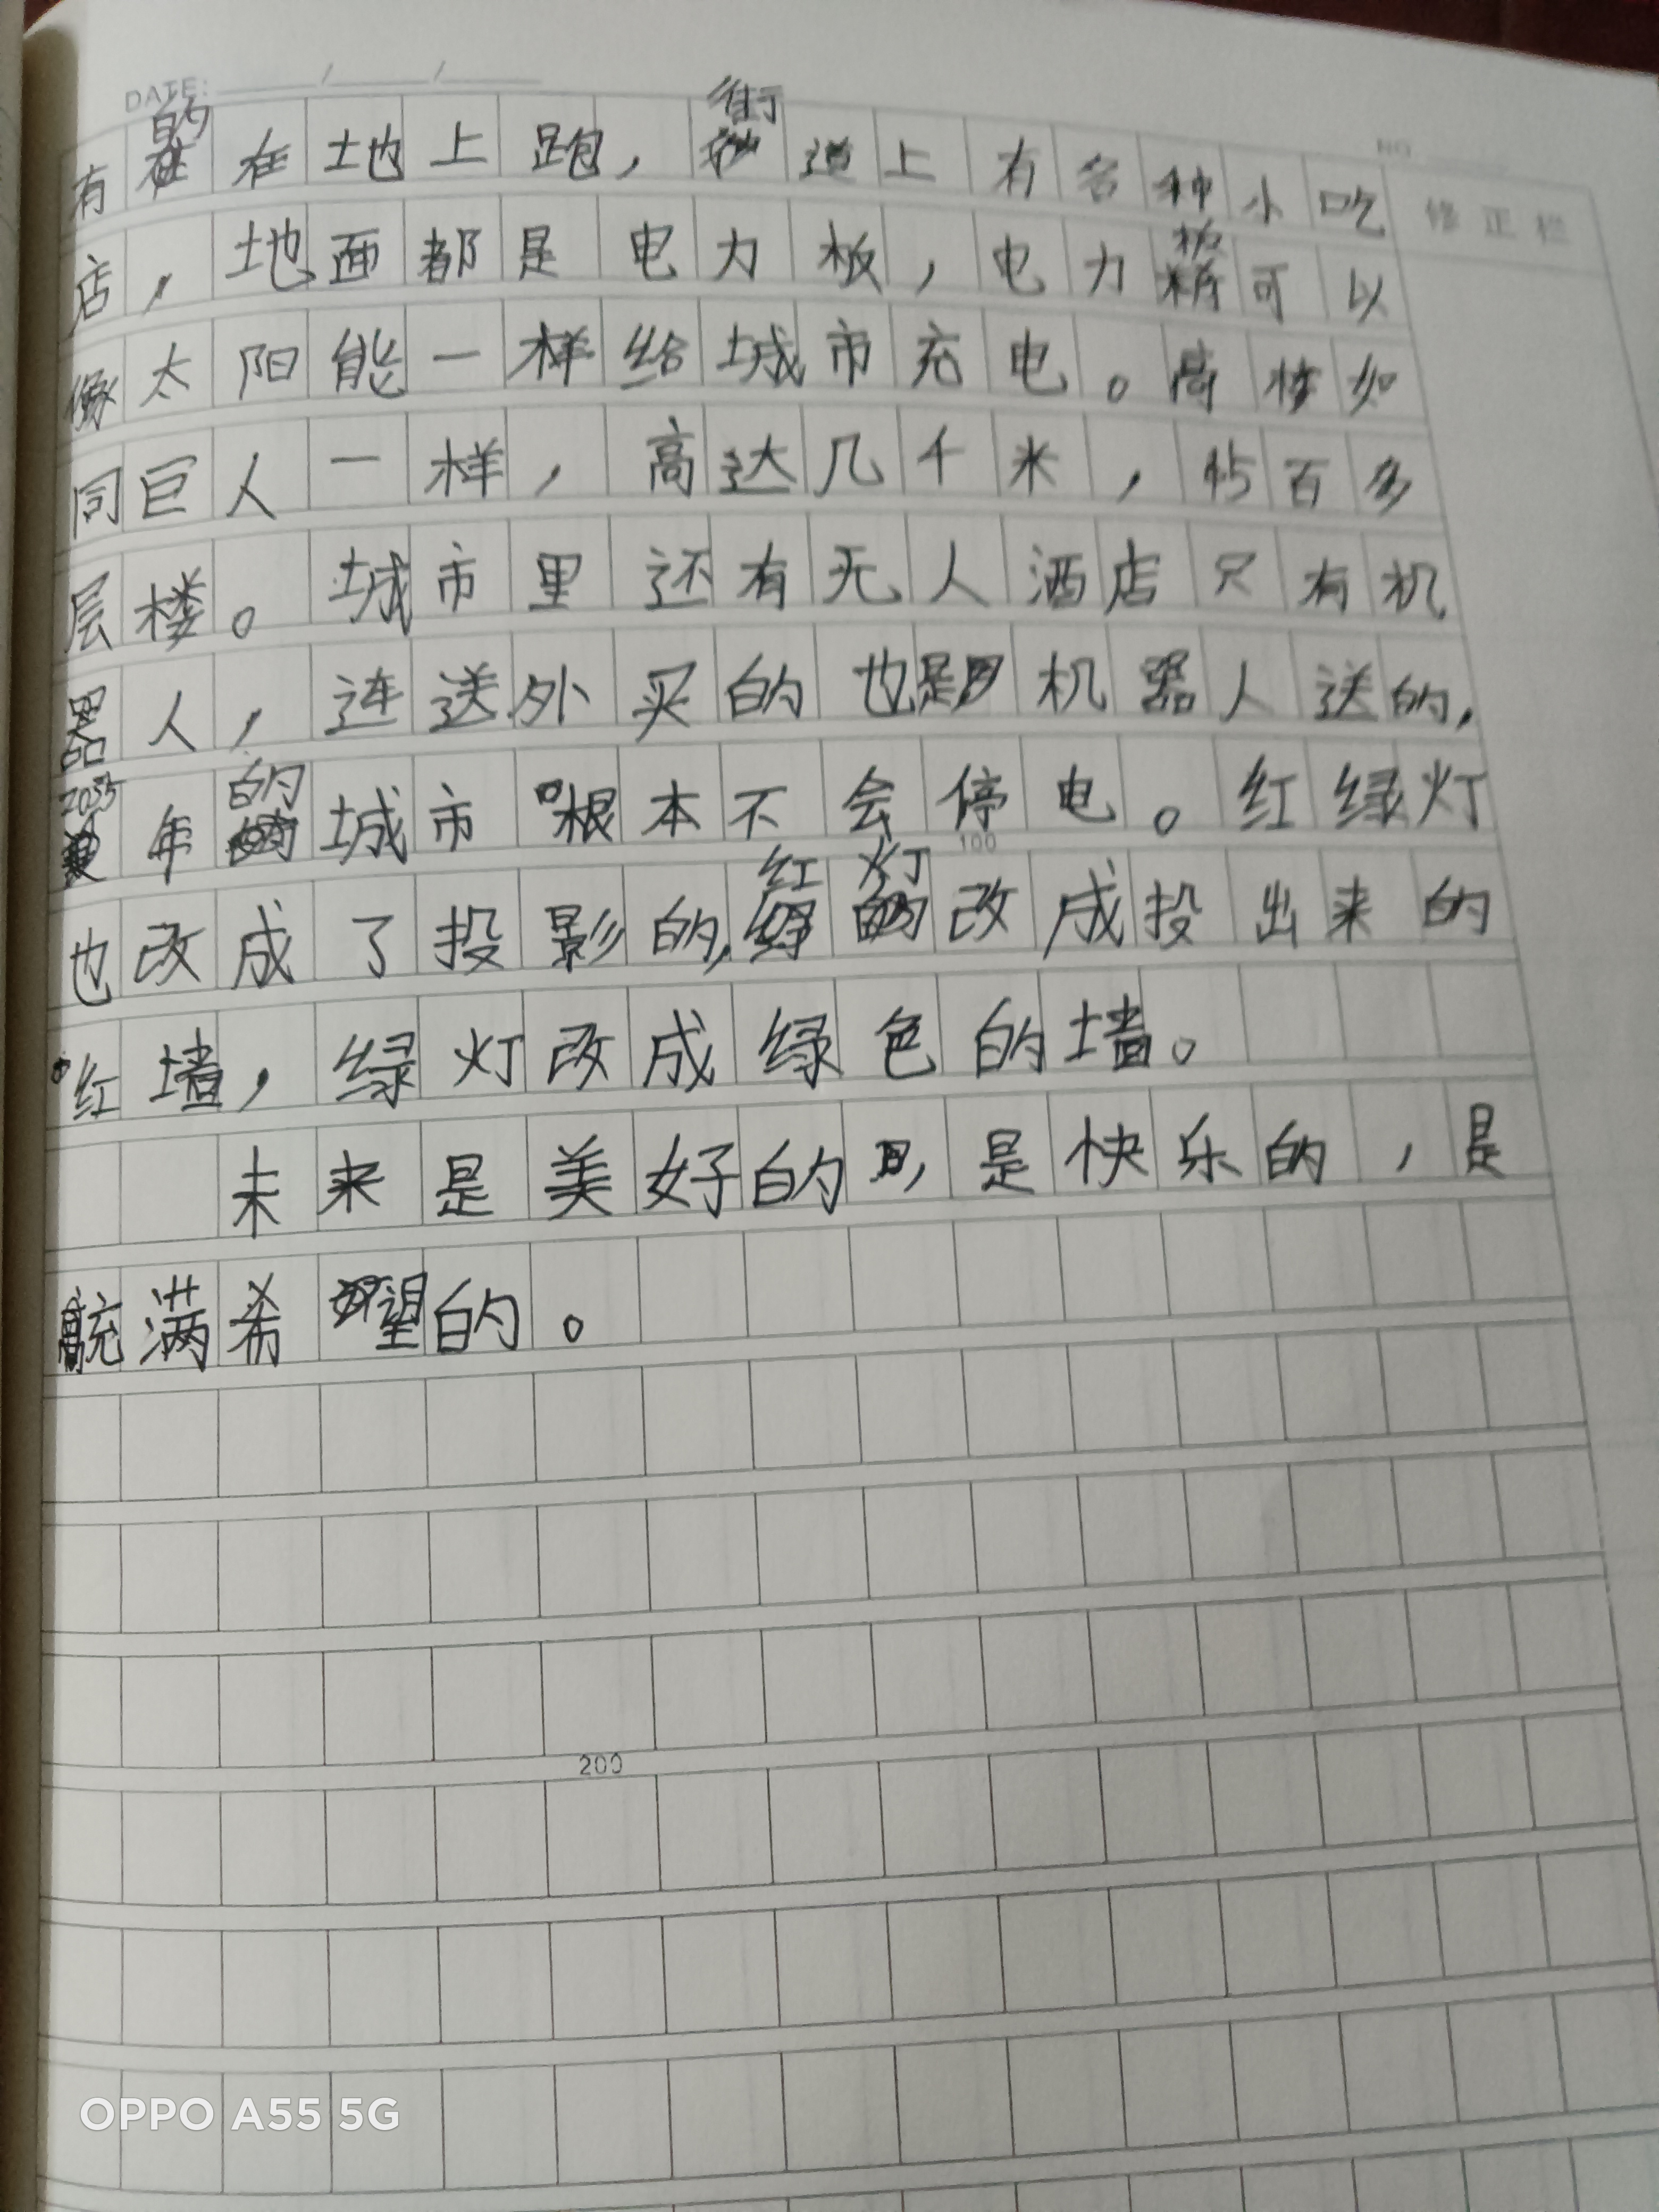 DATE: ____/____/____
NO.
修正栏
有的在地上跑，街道上有各种小吃
店，地面都是电力板，电力板可以
像太阳能一样给城市充电。高楼如
同巨人一样，高达几千米，有百多
层楼。城市里还有无人酒店只有机
器人，连送外买的也是机器人送的，
2035年的城市根本不会停电。红绿灯
100
也改成了投影的，红灯改成投出来的
红墙，绿灯改成绿色的墙。
未来是美好的，是快乐的，是
充满希望的。
200
OPPO A55 5G